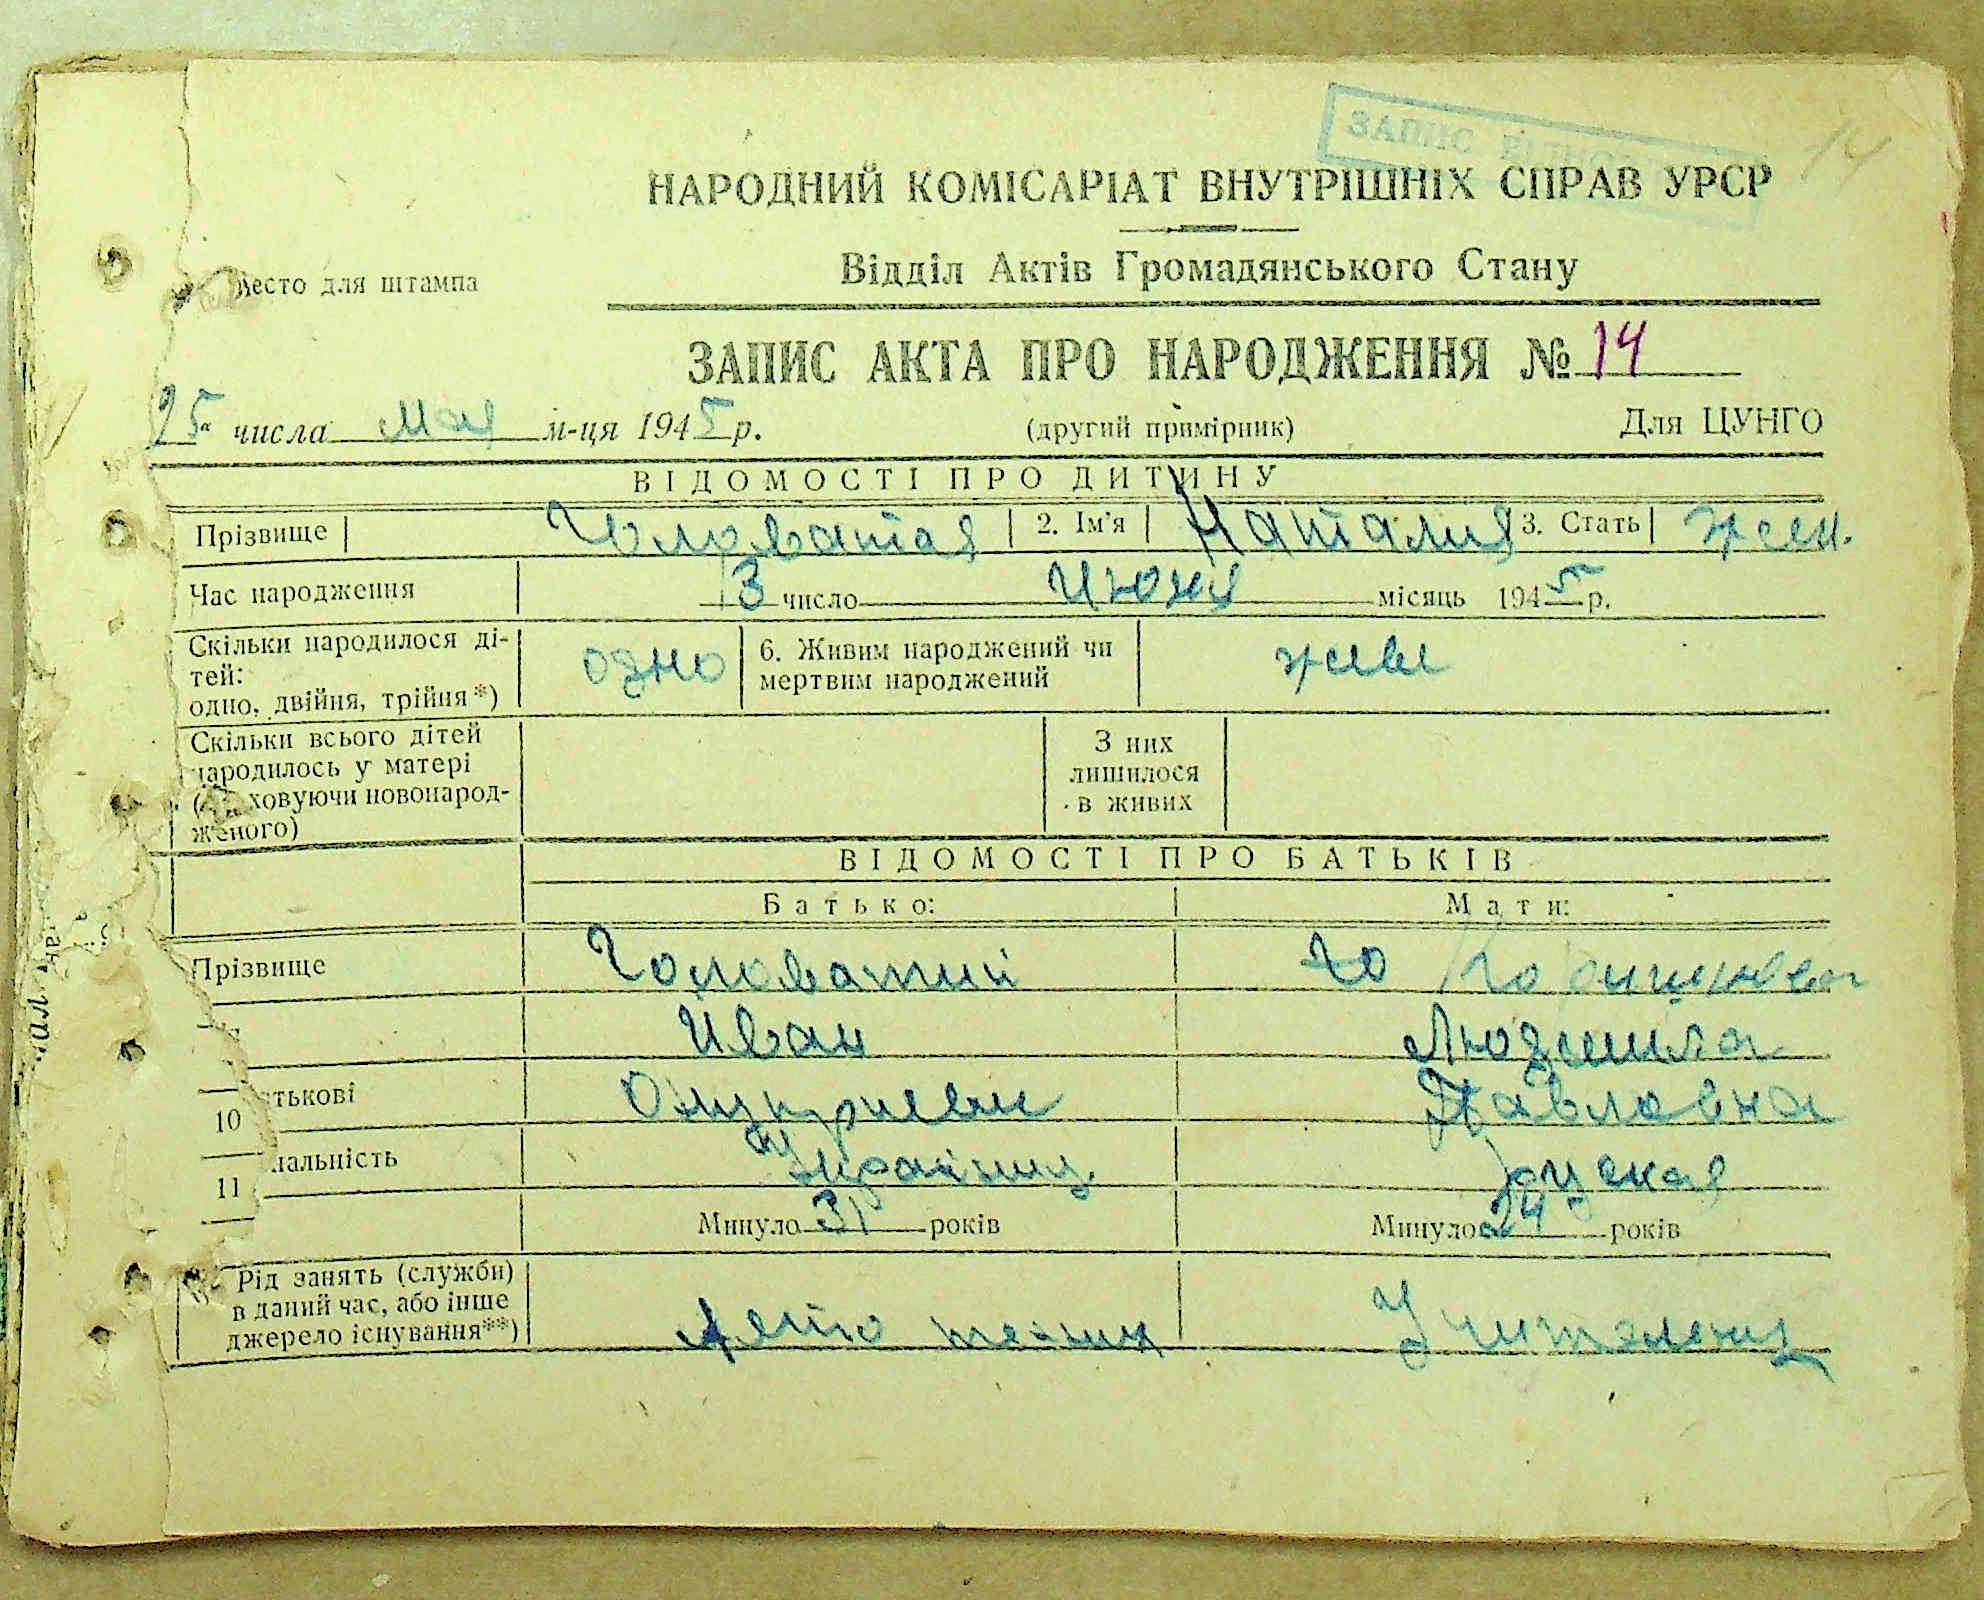 ЗАПИС
14
НАРОДНИЙ КОМІСАРІАТ ВНУТРІШНІХ СПРАВ УРСР
Відділ Актів Громадянського Стану
Место для штампа
ЗАПИС АКТА ПРО НАРОДЖЕННЯ № 14
25 числа мая м-ця 1945 р. (другий примірник) Для ЦУНГО
ВІДОМОСТІ ПРО ДИТИНУ
Прізвище Головатая 2. Ім'я Наталия 3. Стать жен.
Час народження 13 число июня місяць 1945 р.
Скільки народилося ді-
тей:
одно, двійня, трійня*) одно 6. Живим народжений чи
мертвим народжений живи
Скільки всього дітей
народилось у матері
ховуючи новонарод-
женого)
З них
лишилося
в живих
ВІДОМОСТІ ПРО БАТЬКІВ
Батько: Мати:
Прізвище Головатий
Иван Людмила
10 тькові Павловна
11 нальність Украінец руская
Минуло 31 років Минуло 24 років
Рід занять (служби)
в даний час, або інше
джерело існування**) техник Учителениц